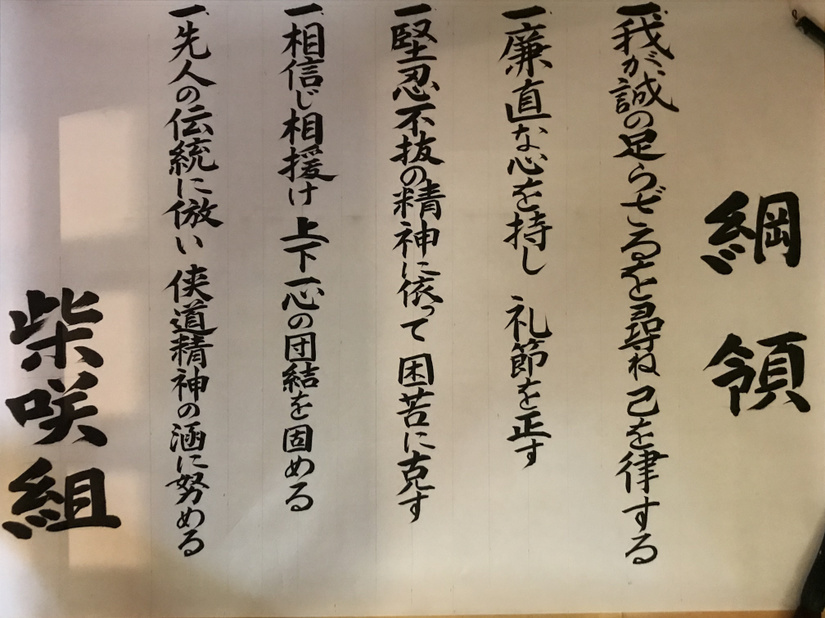 綱領
一、我が誠の足らざるを尋ね 己を律する
一、廉直な心を持し 礼節を正す
一、堅忍不抜の精神に依って 困苦に克す
一、相信じ相援け 上下一心の団結を固める
一、先人の伝統に倣い 侠道精神の涵に努める
柴咲組